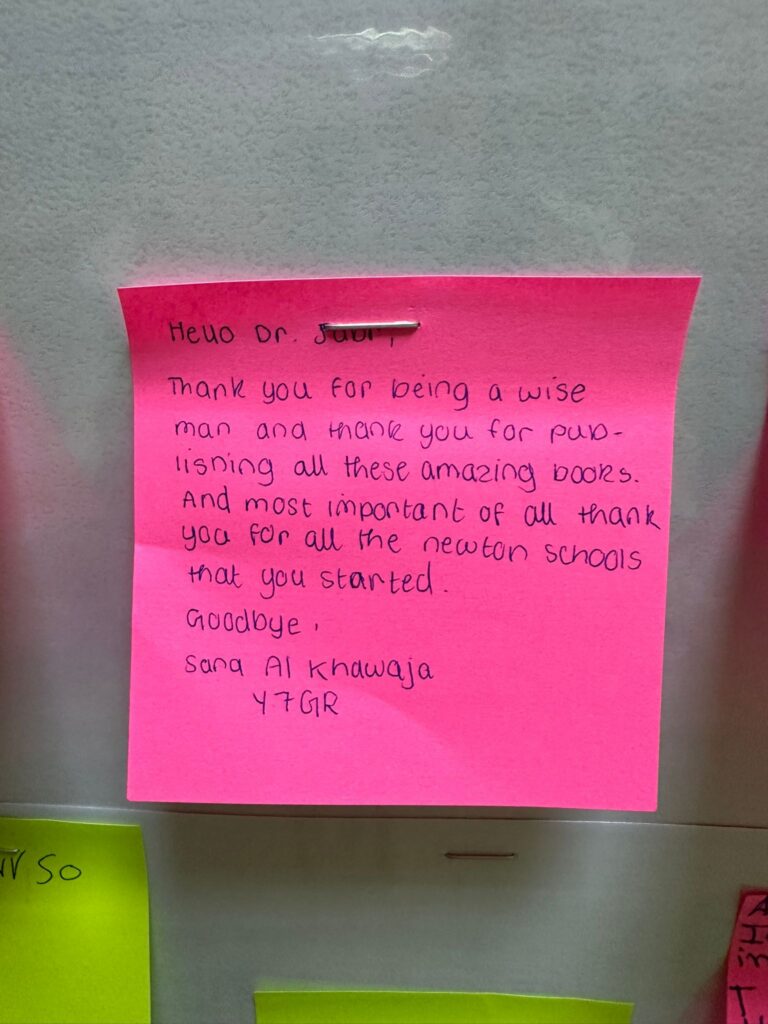 Hello Dr. Sabri,
Thank you for being a wise
man and thank you for pub-
lishing all these amazing books.
And most important of all thank
you for all the newton schools
that you started.
Goodbye,
Sana Al Khawaja
Y7GR
So